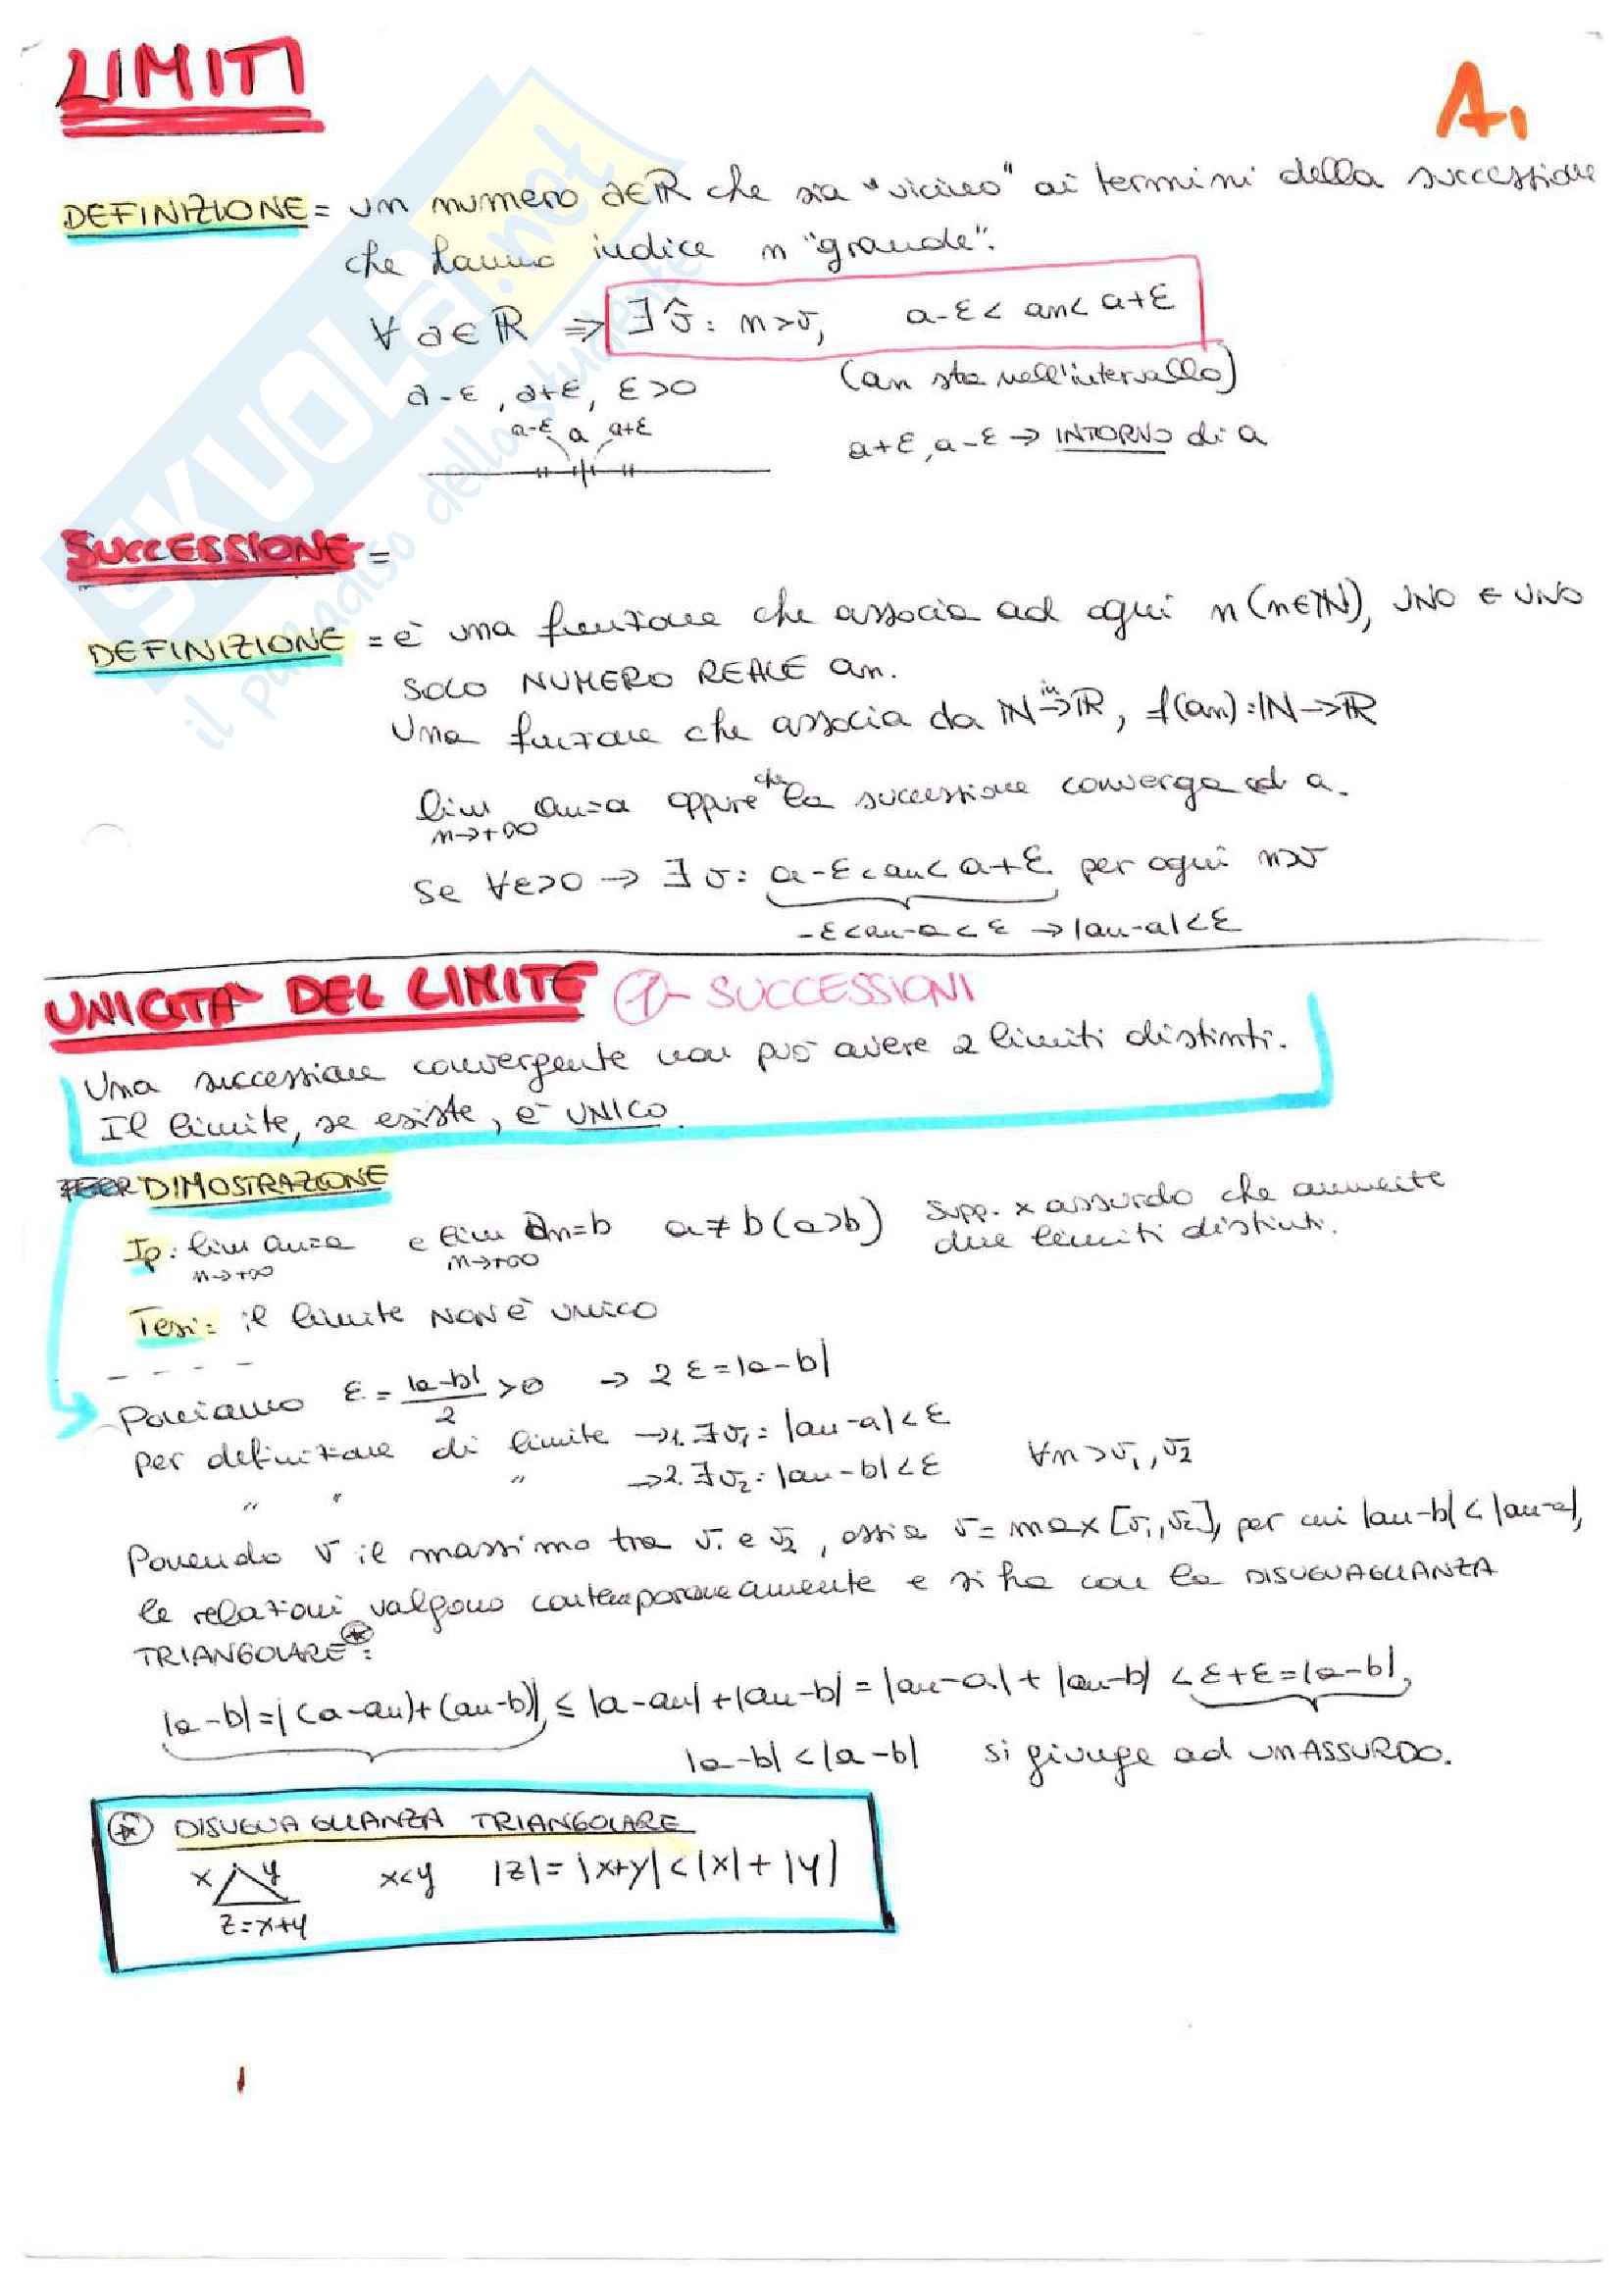 LIMITI
A1
DEFINIZIONE = un numero a∈ℝ che sia "vicino" ai termini della successione
che hanno indice n "grande".
∀ a∈ℝ ⇒ ∃ν̂: n>ν, a-ε< an< a+ε
a-ε, a+ε, ε>0 (an sta nell'intervallo)
a-ε a a+ε
a+ε, a-ε → INTORNO di a
SUCCESSIONE =
DEFINIZIONE = è una funzione che associa ad ogni n (n∈ℕ), UNO E UNO
SOLO NUMERO REALE an.
Una funzione che associa da ℕ in→ ℝ, f(an):ℕ→ℝ
lim an=a oppure che la successione converga ad a.
n→+∞
Se ∀ε>0 → ∃ν: a-ε<an<a+ε per ogni n>ν
-ε<an-a<ε → |an-a|<ε
UNICITÀ DEL LIMITE 1- SUCCESSIONI
Una successione convergente non può avere 2 limiti distinti.
Il limite, se esiste, è UNICO.
DIMOSTRAZIONE
Ip: lim an=a e lim an=b a≠b (a>b) Supp. x assurdo che ammette
n→+∞ n→+∞ due limiti distinti.
Tesi: il limite NON è unico
Poniamo ε = |a-b|/2 >0 → 2ε=|a-b|
per definizione di limite →1. ∃ν1: |an-a|<ε
" " " →2. ∃ν2: |an-b|<ε ∀n>ν1,ν2
Ponendo ν il massimo tra ν1 e ν2, ossia ν=max[ν1,ν2], per cui |an-b|<|an-a|,
le relazioni valgono contemporaneamente e si ha con la DISUGUAGLIANZA
TRIANGOLARE*:
|a-b|=|(a-an)+(an-b)| ≤ |a-an|+|an-b| = |an-a|+|an-b| <ε+ε=|a-b|,
|a-b|<|a-b| si giunge ad un ASSURDO.
* DISUGUAGLIANZA TRIANGOLARE
x y x<y |z|=|x+y|<|x|+|y|
z=x+y
SKUOLA.net
il paradiso dello studente